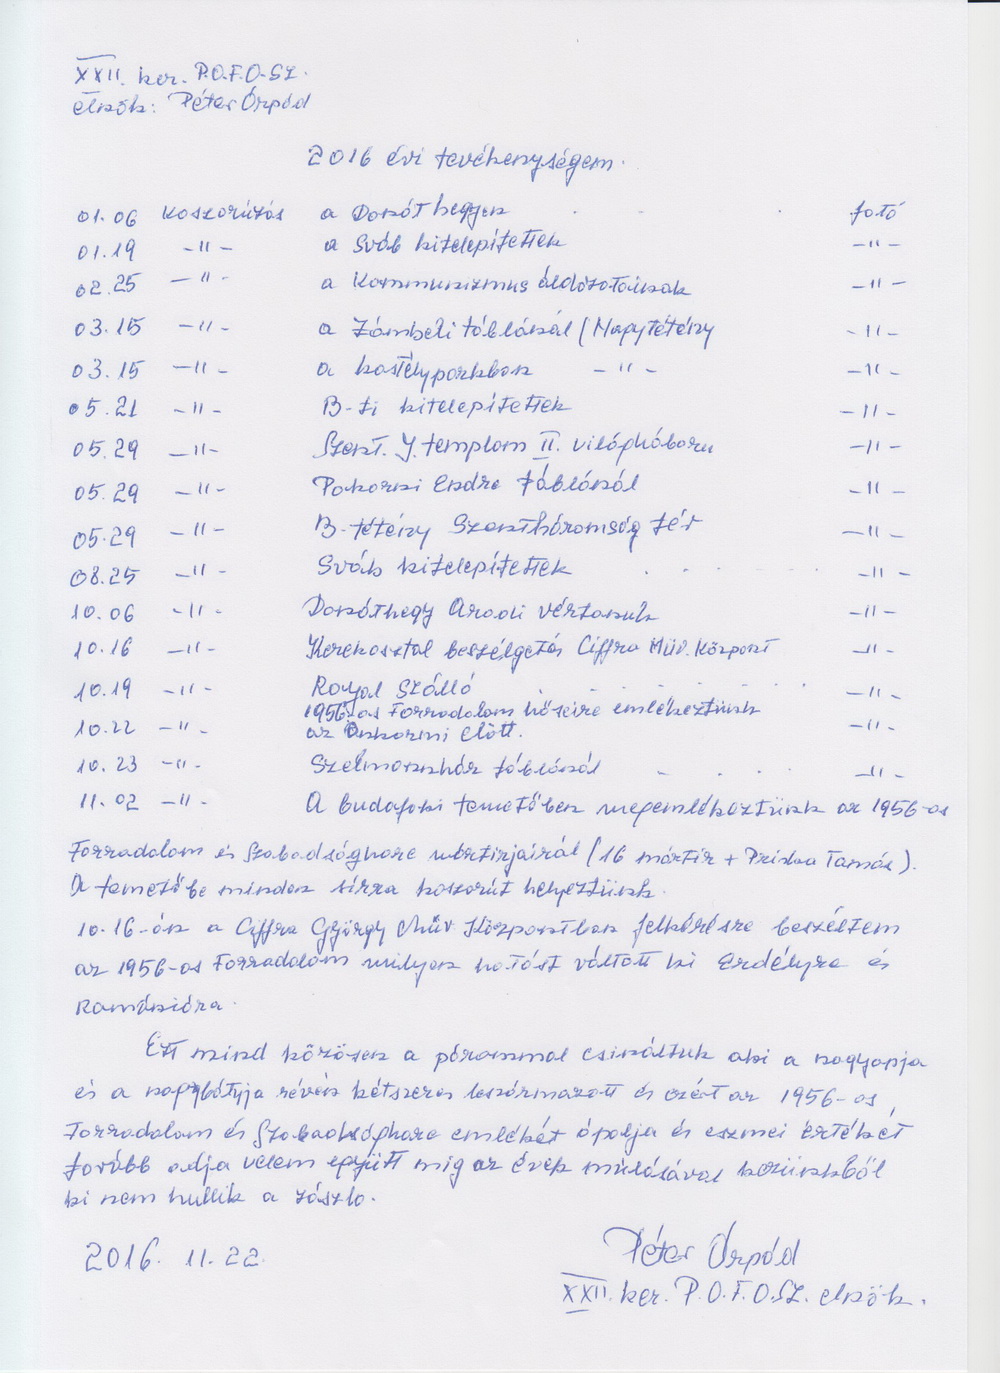 XXII. ker. P.O.F.O.SZ.
elnök: Péter Árpád
2016 évi tevékenységem.
01.06 Koszorúzás a Donát hegyen fotó
01.19 -"- a Sváb kitelepítettek -"-
02.25 -"- a Kommunizmus áldozatainak -"-
03.15 -"- a Zámbeli táblánál (Nagytétény -"-
03.15 -"- a kastélyparkban -"- -"-
05.21 -"- B-ti kitelepítettek -"-
05.29 -"- Szent. J. templom II. világháboru -"-
05.29 -"- Pokorni Endre táblánál -"-
05.29 -"- B-tétény Szentháromság tér -"-
08.25 -"- Sváb kitelepítettek -"-
10.06 -"- Donáthegy Aradi vértanuk -"-
10.16 -"- Kerekasztal beszélgetés Cziffra Műv. Központ -"-
10.19 -"- Royal Szálló -"-
1956-os Forradalom hőseire emlékeztünk
10.22 -"- az Önkormi előtt. -"-
10.23 -"- Szelmannház táblánál -"-
11.02 -"- A budafoki temetőben megemlékeztünk az 1956-os
Forradalom és Szabadságharc mártirjairól (16 mártir + Priska Tamás).
A temetőbe minden sirra koszorút helyeztünk.
10.16-án a Cziffra György Műv Központban felkérésre beszéltem
az 1956-os Forradalom milyen hatást váltott ki Erdélyre és
Romániára.
Ezt mind közösen a párommal csináltuk aki a nagyapja
és a nagybátyja révén kétszeres leszármazott és ezért az 1956-os
Forradalom és Szabadságharc emlékét ápolja és eszmei értékét
tovább adja velem együtt mig az évek múlásával kezünkből
ki nem hullik a zászló.
2016. 11. 22.
Péter Árpád
XXII. ker. P.O.F.O.SZ. elnök.